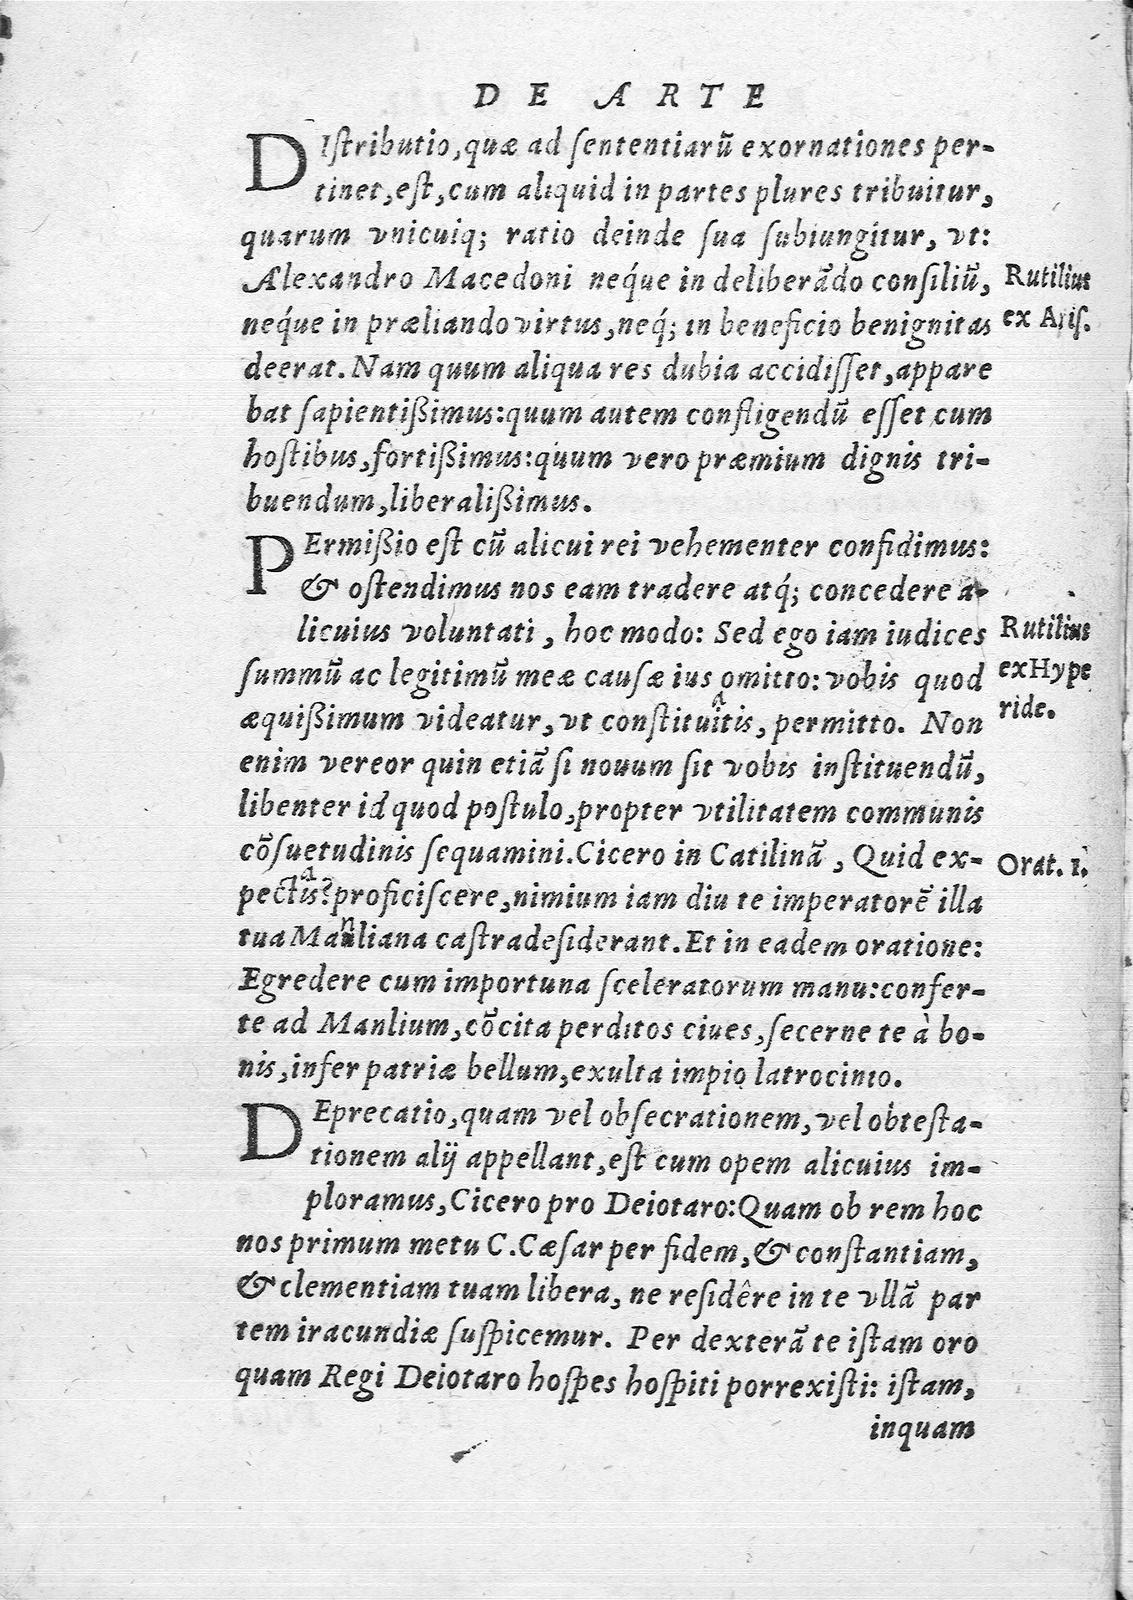 DE ARTE
DIſtributio, quæ ad ſententiarū exornationes per-
tinet, eſt, cum aliquid in partes plures tribuitur,
quarum vnicuiq; ratio deinde ſua ſubiungitur, vt:
Alexandro Macedoni neq́ue in deliberādo conſiliū,
Rutilius
neq́ue in præliando virtus, neq́; in beneficio benignitas
ex Ariſ.
deerat. Nam quum aliqua res dubia accidiſſet, appare
bat ſapientißimus: quum autem confligendū eſſet cum
hoſtibus, fortißimus: quum vero præmium dignis tri-
buendum, liberalißimus.
PErmißio eſt cū alicui rei vehementer confidimus:
& oſtendimus nos eam tradere atq́; concedere a-
licuius voluntati, hoc modo: Sed ego iam iudices
Rutilius
ſummū ac legitimū meæ cauſæ ius omitto: vobis quod
ex Hype
æquißimum videatur, vt conſtituitis, permitto. Non
a
ride.
enim vereor quin etiā ſi nouum ſit vobis inſtituendū,
libenter id quod poſtulo, propter vtilitatem communis
cōſuetudinis ſequamini. Cicero in Catilinā, Quid ex-
Orat. 1.
pectis? proficiſcere, nimium iam diu te imperatorē illa
a
tua Mauliana caſtra deſiderant. Et in eadem oratione:
n
Egredere cum importuna ſceleratorum manu: confer-
te ad Manlium, cōcita perditos ciues, ſecerne te à bo-
nis, infer patriæ bellum, exulta impio latrocinio.
DEprecatio, quam vel obſecrationem, vel obteſta-
tionem alij appellant, eſt cum opem alicuius im-
ploramus, Cicero pro Deiotaro: Quam ob rem hoc
nos primum metu C. Cæſar per fidem, & conſtantiam,
& clementiam tuam libera, ne reſidêre in te vllā par
tem iracundiæ ſuſpicemur. Per dexterā te iſtam oro
quam Regi Deiotaro hoſpes hoſpiti porrexiſti: iſtam,
inquam